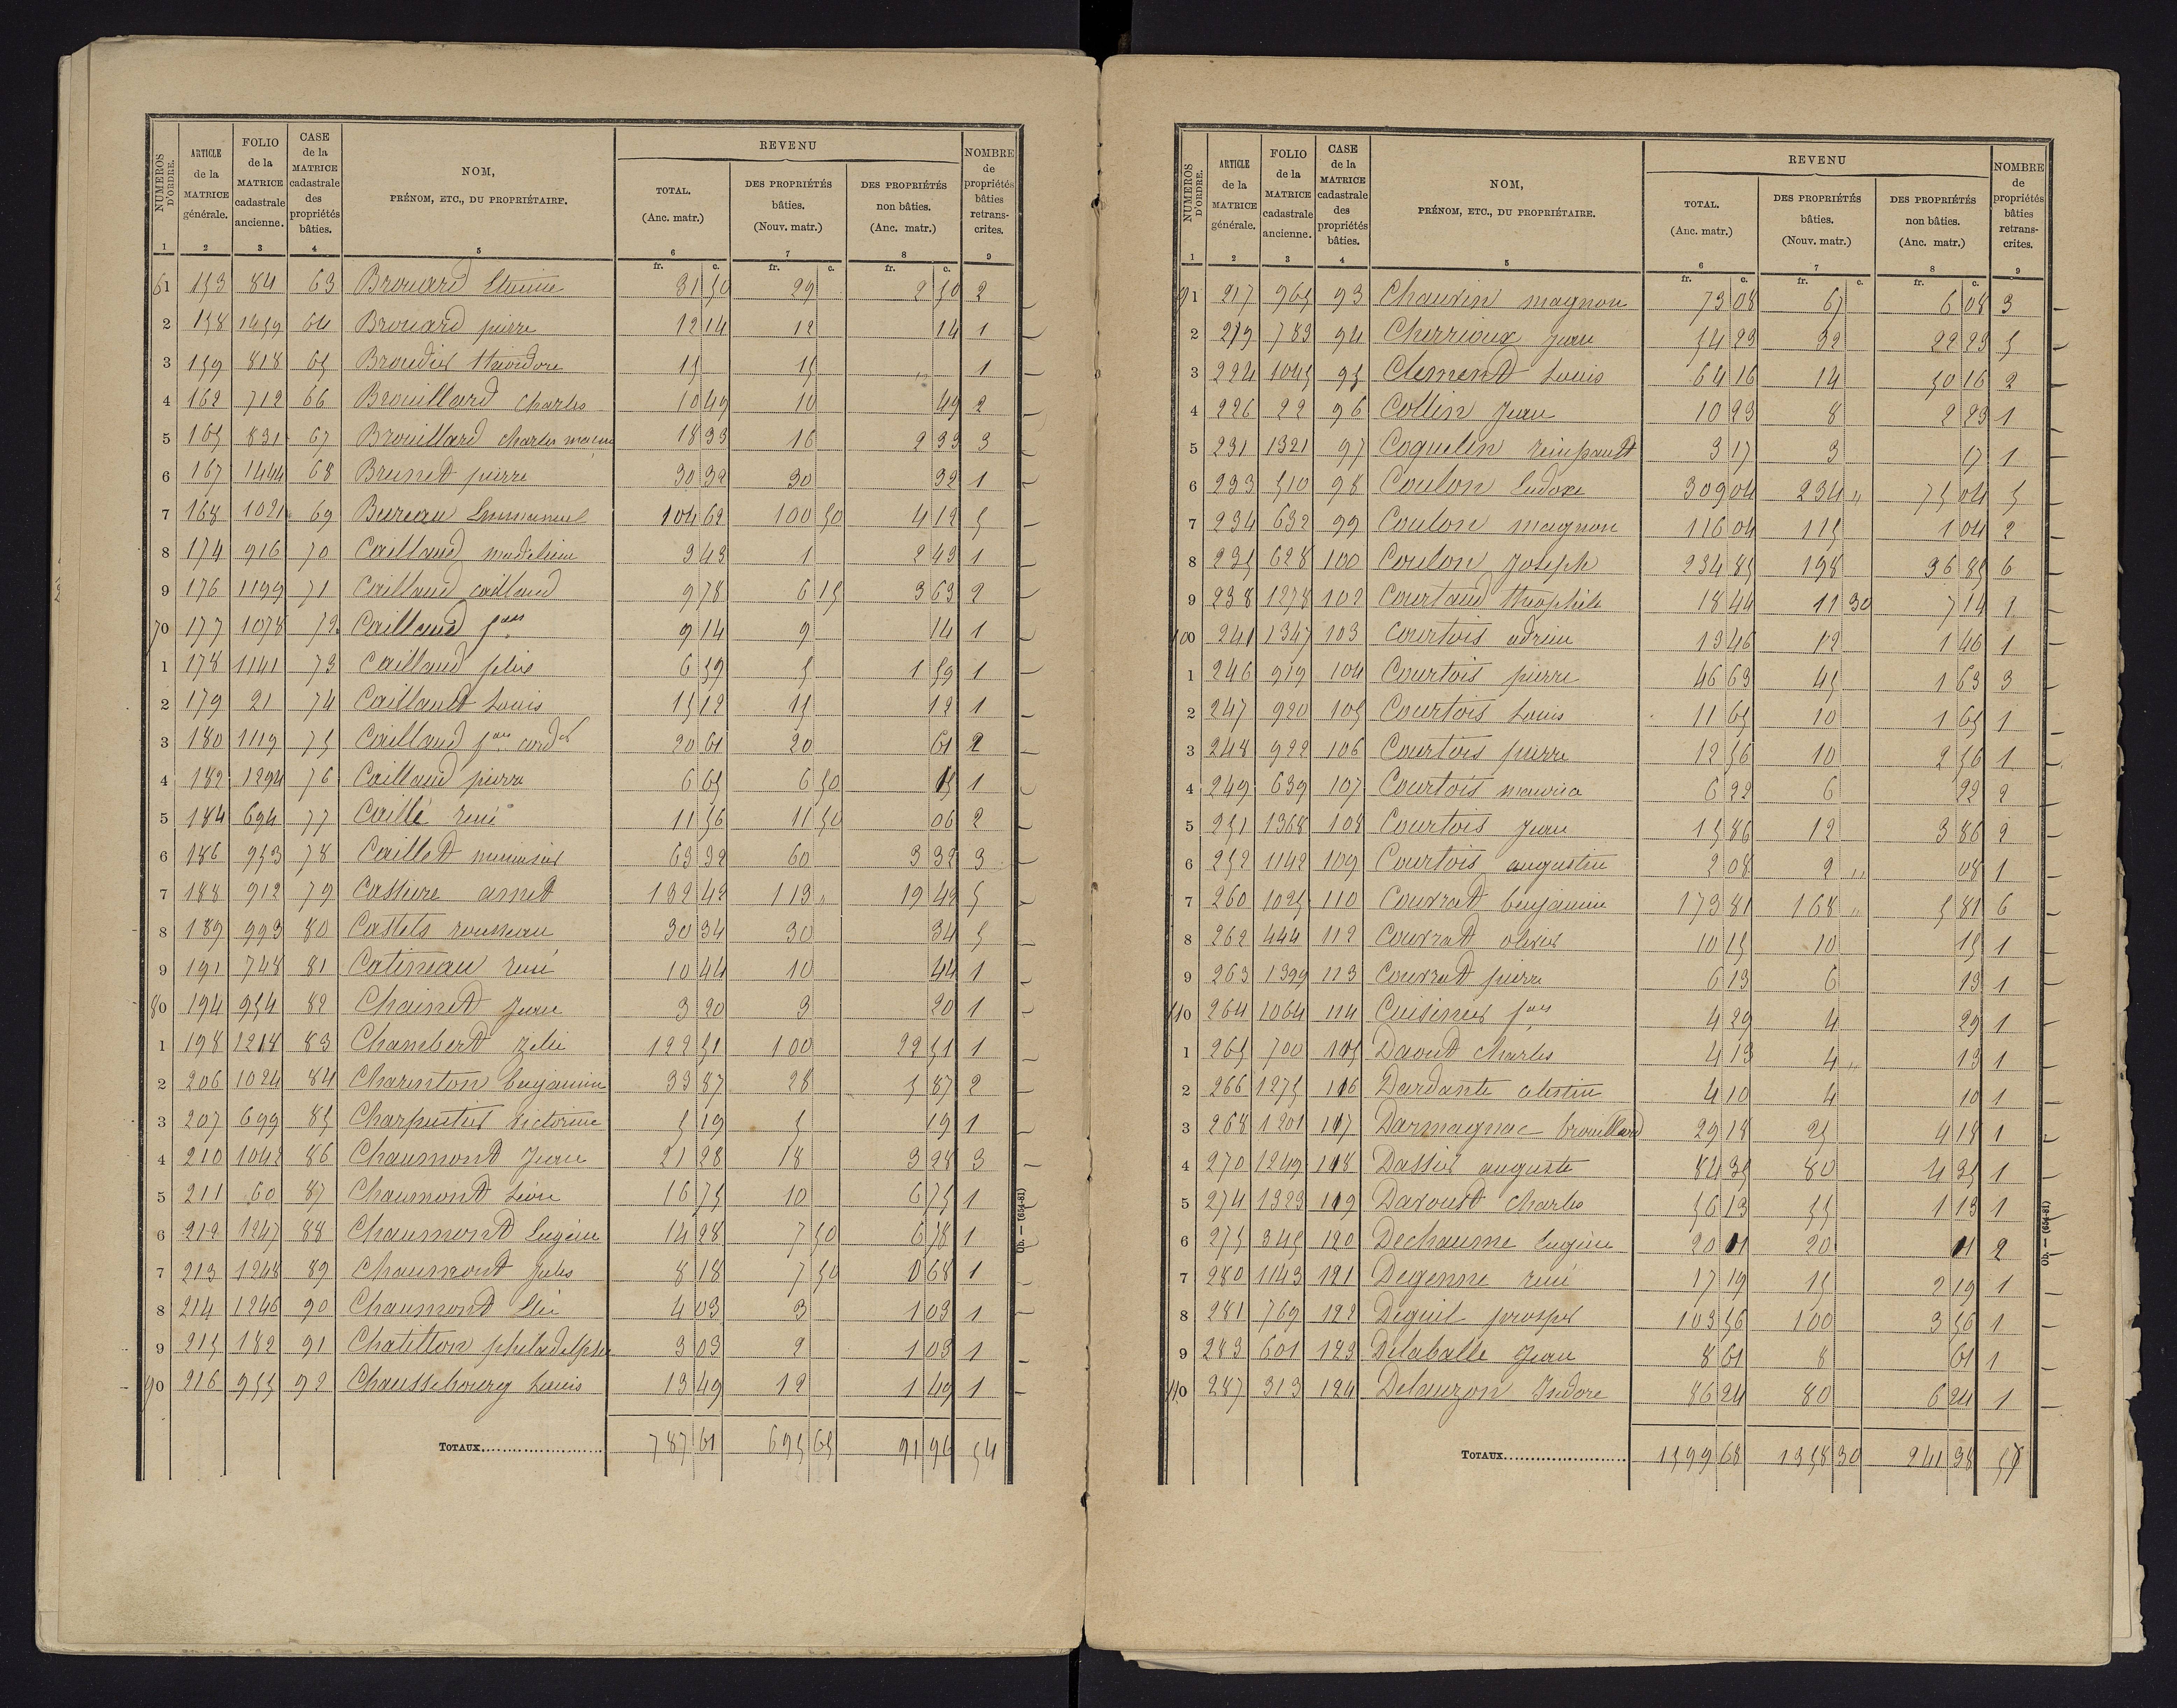 NUMEROS D'ORDRE. | ARTICLE de la MATRICE générale. | FOLIO de la MATRICE cadastrale ancienne. | CASE de la MATRICE cadastrale des propriétés bâties. | NOM, PRÉNOM, ETC., DU PROPRIÉTAIRE. | REVENU TOTAL. (Anc. matr.) | DES PROPRIÉTÉS bâties. (Nouv. matr.) | DES PROPRIÉTÉS non bâties. (Anc. matr.) | NOMBRE de propriétés bâties retranscrites.
1 2 3 4 5 6 7 8 9
fr. c. fr. c. fr. c.
61 153 84 63 Brouard 31 50 29 2 50 2
2 158 1459 64 Brouard pierre 12 14 12 14 1
3 159 818 65 Broudier théodore 15 15 " 1
4 162 712 66 Brouillard Charles 10 49 10 49 2
5 165 831 67 Brouillard Charles 18 33 16 2 33 3
6 167 1444 68 Brunet pierre 30 32 30 32 1
7 168 1021 69 Bureau Emmanuel 104 62 100 50 4 12 5
8 174 916 70 Caillaud madeleine 3 43 1 2 43 1
9 176 1199 71 Caillaud caillaud 9 78 6 15 3 63 2
70 177 1078 72 Caillaud 9 14 9 14 1
1 178 1141 73 Caillaud félix 6 59 5 1 59 1
2 179 21 74 Caillault Louis 15 12 15 12 1
3 180 1119 75 Caillaud 20 61 20 61 2
4 182 1294 76 Caillaud pierre 6 65 6 50 15 1
5 184 694 77 Caillé rené 11 56 11 50 06 2
6 186 953 78 Caillet 63 32 60 3 32 3
7 188 912 79 Cassiere amet 132 42 113 " 19 42 5
8 189 993 80 Castets rousseau 30 34 30 34 5
9 191 748 81 Catineau rené 10 44 10 44 1
80 194 954 82 Chainet Jean 3 20 3 20 1
1 198 1218 83 Chambert Zelie 122 51 100 22 51 1
2 206 1024 84 Charenton benjamin 33 87 28 5 87 2
3 207 699 85 Charpentier victorine 5 19 5 19 1
4 210 1042 86 Chaumont Jean 21 28 18 3 28 3
5 211 60 87 Chaumont Léon 16 75 10 6 75 1
6 212 1247 88 Chaumont Eugène 14 28 7 50 6 78 1
7 213 1248 89 Chaumont Jules 8 18 7 50 0 68 1
8 214 1246 90 Chaumont Elie 4 03 3 1 03 1
9 215 182 91 Chatillon philadelphe 3 03 2 1 03 1
90 216 955 92 Chaussebourg Louis 13 49 12 1 49 1
TOTAUX 787 61 695 65 91 96 54
Ob. — (654-81)
NUMEROS D'ORDRE. | ARTICLE de la MATRICE générale. | FOLIO de la MATRICE cadastrale ancienne. | CASE de la MATRICE cadastrale des propriétés bâties. | NOM, PRÉNOM, ETC., DU PROPRIÉTAIRE. | REVENU TOTAL. (Anc. matr.) | DES PROPRIÉTÉS bâties. (Nouv. matr.) | DES PROPRIÉTÉS non bâties. (Anc. matr.) | NOMBRE de propriétés bâties retranscrites.
1 2 3 4 5 6 7 8 9
fr. c. fr. c. fr. c.
91 217 965 93 Chauvin magnon 73 08 67 6 08 3
2 219 783 94 Cherrioux Jean 54 23 32 22 23 5
3 224 1045 95 Clement Louis 64 16 14 50 16 2
4 226 22 96 Collin Jean 10 23 8 2 23 1
5 231 1321 97 Coquelin reinpault 3 17 3 17 1
6 233 510 98 Coulon Eudoxe 309 04 234 " 75 04 5
7 234 632 99 Coulon magnon 116 04 115 1 04 2
8 235 628 100 Coulon Joseph 234 85 198 36 85 6
9 238 1278 102 Courtaud théophile 18 44 11 30 7 14 2
100 241 1347 103 Courtois adrien 13 46 12 1 46 1
1 246 919 104 Courtois pierre 46 63 45 1 63 3
2 247 920 105 Courtois Louis 11 65 10 1 65 1
3 248 922 106 Courtois pierre 12 56 10 2 56 1
4 249 639 107 Courtois maurice 6 22 6 22 2
5 251 1368 108 Courtois Jean 15 86 12 3 86 2
6 252 1142 109 Courtois augustin 2 08 2 " 08 1
7 260 1025 110 Couvrat benjamin 173 81 168 " 5 81 6
8 262 444 112 Couvrat olivier 10 15 10 15 1
9 263 1399 113 Couvrat pierre 6 13 6 13 1
110 264 1064 114 Cuisinier 4 29 4 29 1
1 265 700 115 Daout Charles 4 13 4 " 13 1
2 266 1275 116 Dardante celestin 4 10 4 10 1
3 268 1201 117 Darmagnac brouillard 29 18 25 4 18 1
4 270 1249 118 Dassier auguste 84 35 80 4 35 1
5 274 1323 119 Davoust Charles 56 13 55 1 13 1
6 275 345 120 Dechaume Eugène 20 01 20 01 2
7 280 1143 121 Degenne rené 17 19 15 2 19 1
8 281 769 122 Deguil prosper 103 56 100 3 56 1
9 283 601 123 Delaballe Jean 8 61 8 61 1
110 287 313 124 Delauzon Isidore 86 24 80 6 24 1
TOTAUX 1599 68 1358 30 241 38
Ob. — (654-81)